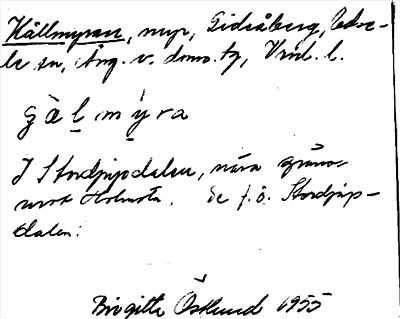 Källmyran, myr, Gideåberg, Edse-
le sn, Ång. v. doms. tg, Vnrl. l.
gäl mýra
I Stordjupdalen, nära gräns
mot Holmsta. Se f.ö. Stordjup-
dalen.
Birgitta Östlund 1955